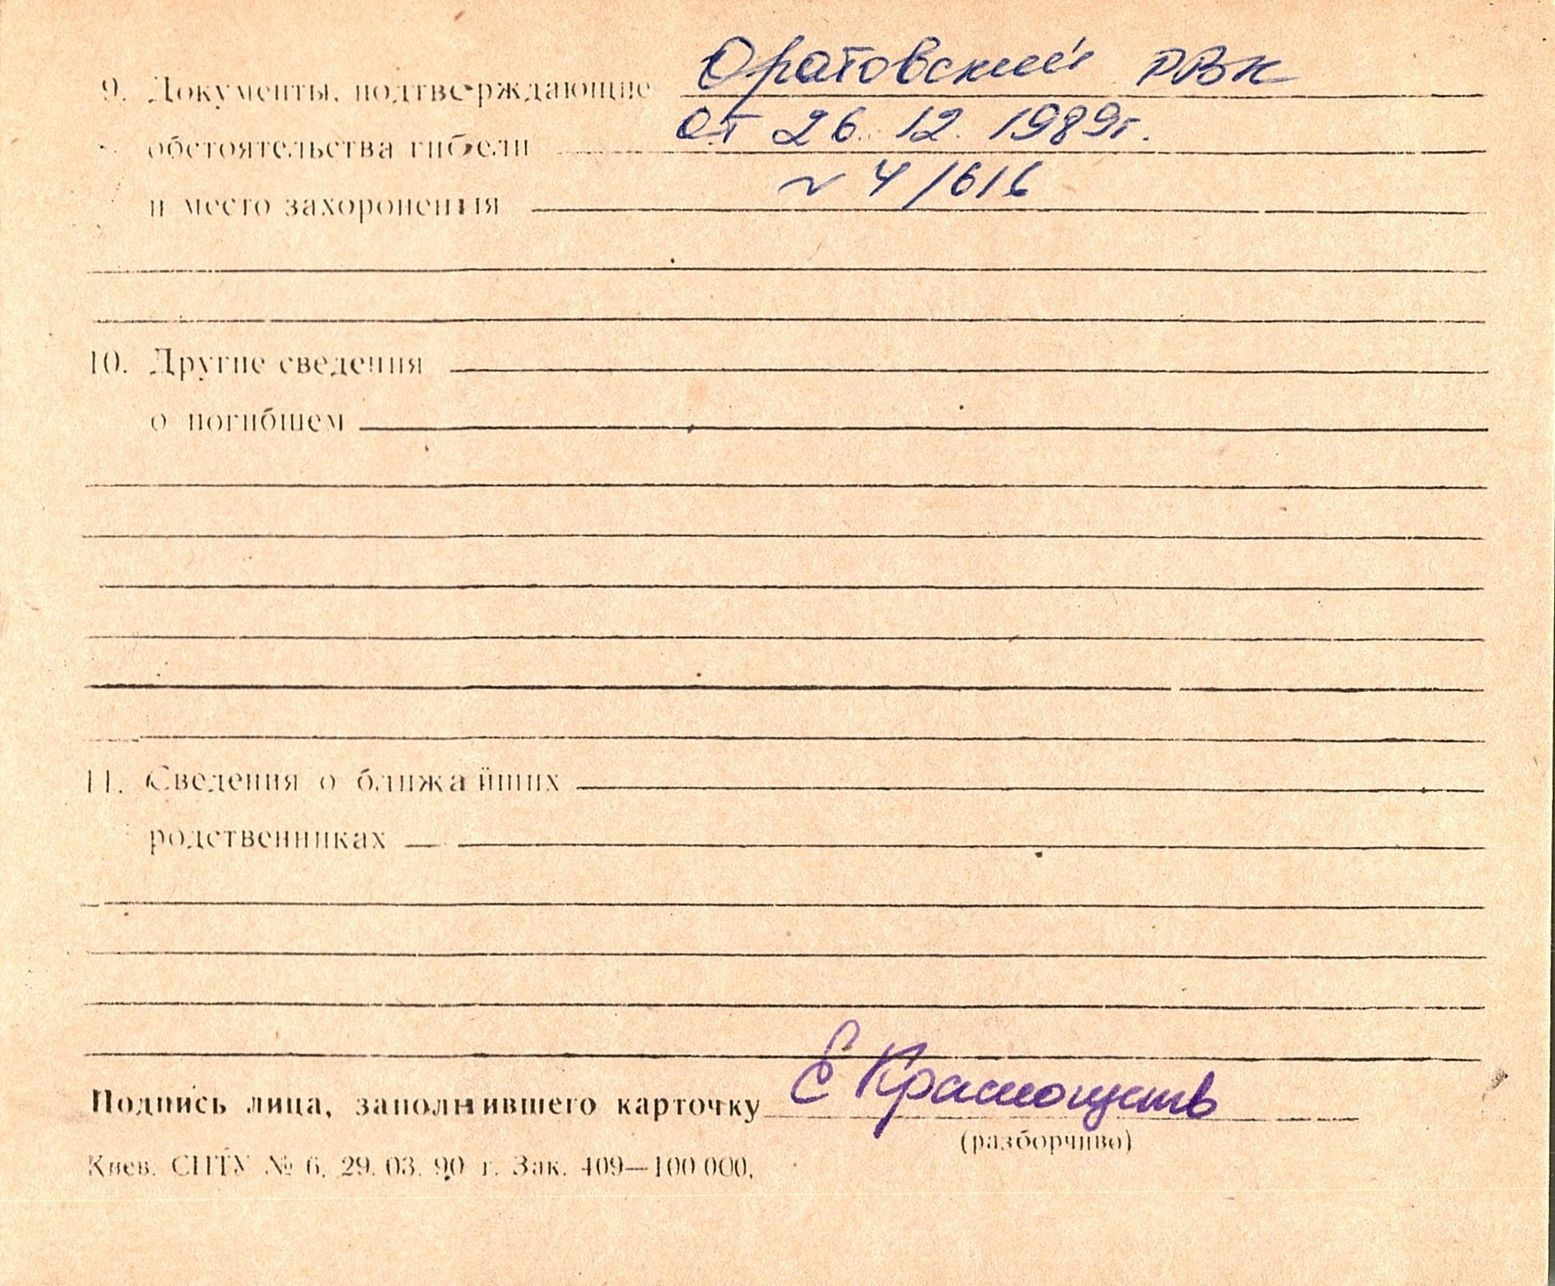 9. Документы, подтверждающие Оратовский РВК
обстоятельства гибели от 26.12.1989г.
и место захоронения № 4/616
10. Другие сведения
о погибшем
11. Сведения о ближайших
родственниках
Подпись лица, заполнившего карточку Е
(разборчиво)
Киев. СПТУ № 6. 29. 03. 90 г. Зак. 409—100 000.